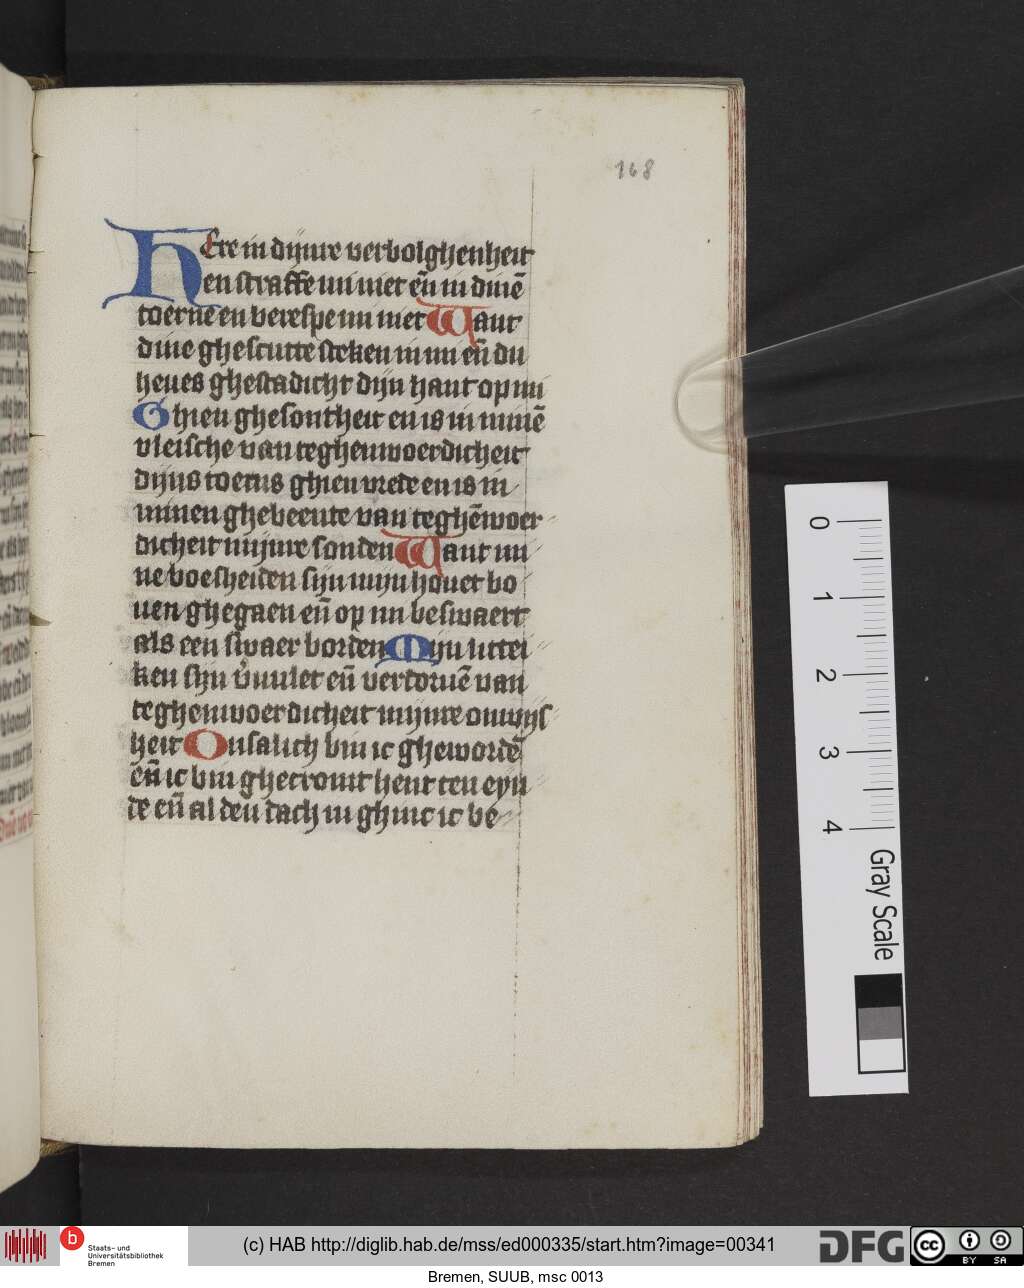 168
HEre in dijnre verbolghenheit
en straffe mi niet eñ in dinē
toerne en berespe mi niet Want
dine ghescutte steken in mi eñ du
heues ghestadicht dijn hant op mi
Ghien ghesontheit en is in minē
vleische van teghenwoerdicheit
dijns toerns ghien vrede en is in
minen ghebeente van teghēwoer
dicheit mijnre sonden Want mi
ne boesheiden sijn mijn hovet bo
uen ghegaen eñ op mi beswaert
als een swaer borden Mijn littei
ken sijn v̉uulet eñ vertoruē van
teghenwoerdicheit mijnre onwijs
heit Onsalich bin ic gheworde̅
eñ ic bin ghecromt hent ten eyn
de eñ al den dach in ghinc ic be
0
1
2
3
4
Gray Scale
b
Staats- und
Universitätsbibliothek
Bremen
(c) HAB http://diglib.hab.de/mss/ed000335/start.htm?image=00341
DFG
cc
BY SA
Bremen, SUUB, msc 0013